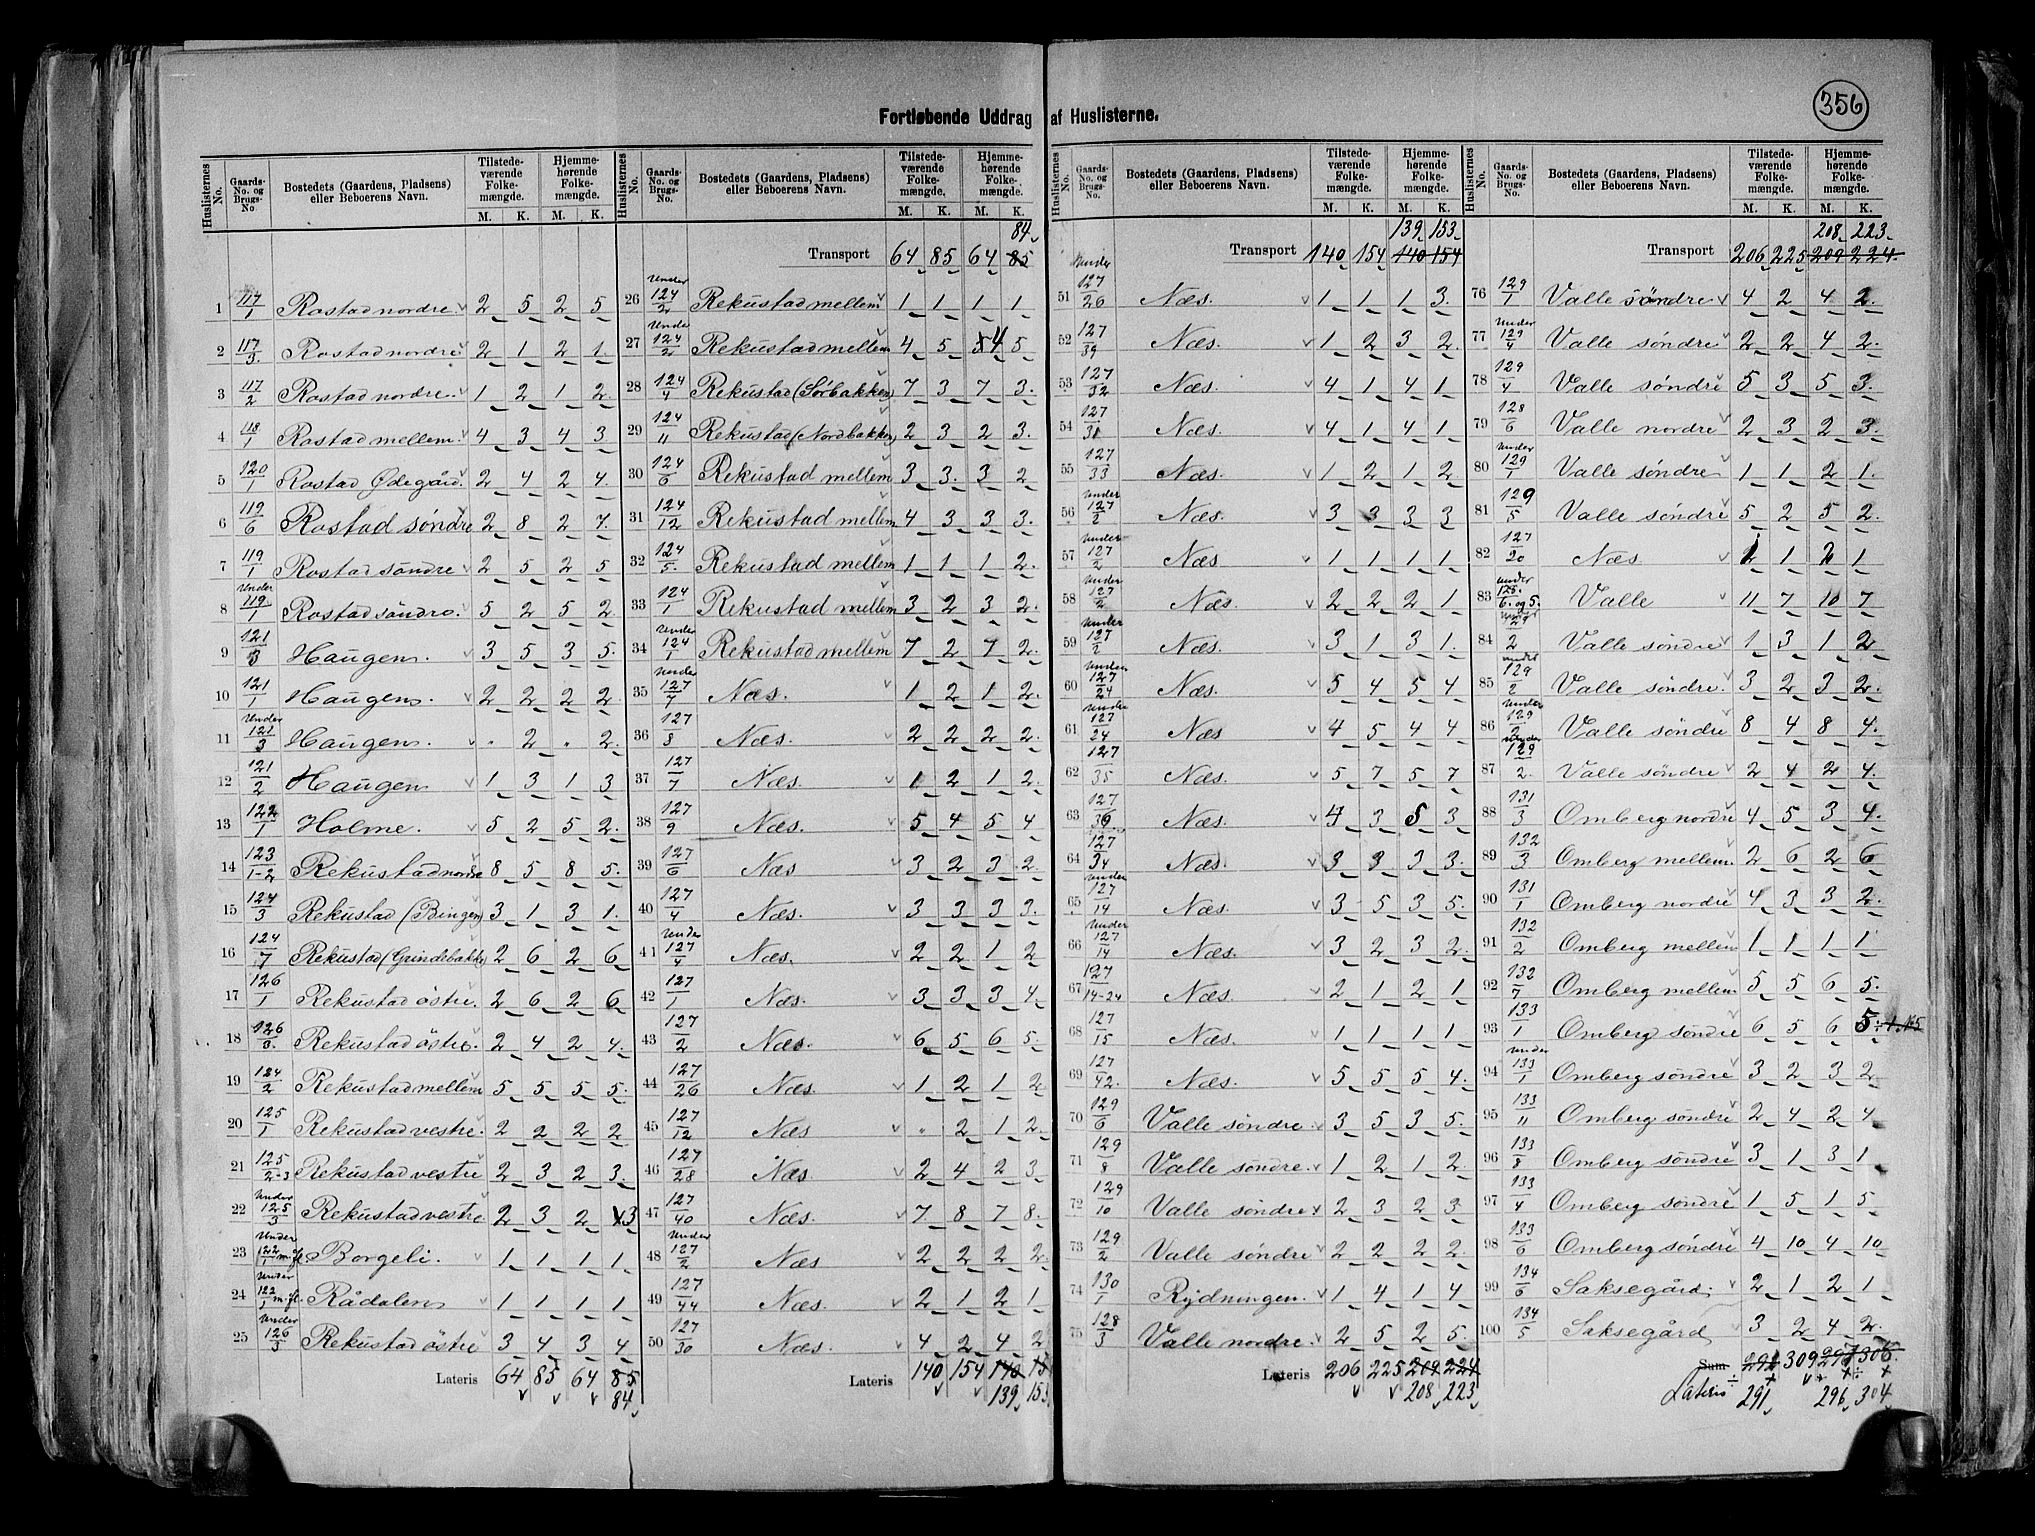 356
Fortløbende Uddrag af Huslisterne.
Huslisternes No. | Gaards-No. og Brugs-No. | Bostedets (Gaardens, Pladsens) eller Beboerens Navn. | Tilstedeværende Folkemængde. M. K. | Hjemmehørende Folkemængde. M. K.
1 117/1 Rostad nordre 2 5 2 5
2 117/3 Rostad nordre 2 1 2 1
3 117/2 Rostad nordre 1 2 1 2
4 118/1 Rostad mellem 4 3 4 3
5 120/1 Rostad Ødegård 2 4 2 4
6 119/6 Rostad søndre 2 8 2 7
7 119/1 Rostad søndre 2 5 2 5
8 Under 119/1 Rostad søndre 5 2 5 2
9 121/3 Haugen 3 5 3 5
10 121/1 Haugen 2 2 2 2
11 Under 121/3 Haugen " 2 " 2
12 121/2 Haugen 1 3 1 3
13 122/1 Holme 5 2 5 2
14 123/1-2 Rekustad nordre 8 5 8 5
15 124/3 Rekustad (Bingen) 3 1 3 1
16 124/7 Rekustad (Grindebakk) 2 6 2 6
17 126/1 Rekustad östre 2 6 2 6
18 126/3 Rekustad östre 2 4 2 4
19 124/2 Rekustad mellem 5 5 5 5
20 125/1 Rekustad vestre 2 2 2 2
21 125/2-3 Rekustad vestre 2 3 2 3
22 Under 125/3 Rekustad vestre 2 3 2 3
23 Under 122/1 m.fl. Borgeli 1 1 1 1
24 Under 122/1 m.fl. Rådalen 1 1 1 1
25 Under 126/3 Rekustad östre 3 4 3 4
Lateris 64 85 64 85
84
Huslisternes No. | Gaards-No. og Brugs-No. | Bostedets (Gaardens, Pladsens) eller Beboerens Navn. | Tilstedeværende Folkemængde. M. K. | Hjemmehørende Folkemængde. M. K.
84
Transport 64 85 64 85
26 Under 124/2 Rekustad mellem 1 1 1 1
27 Under 124/2 Rekustad mellem 4 5 5 4 5
28 124/4 Rekustad (Sørbakken) 7 3 7 3
29 124/11 Rekustad (Nordbakken) 2 3 2 3
30 124/6 Rekustad mellem 3 3 3 2
31 124/12 Rekustad mellem 4 3 3 3
32 124/5 Rekustad mellem 1 1 1 2
33 124/1 Rekustad mellem 3 2 3 2
34 Under 124/1 Rekustad mellem 7 2 7 2
35 Under 127/7 Næs. 1 2 1 2
36 127/8 Næs. 2 2 2 2
37 127/7 Næs. 1 2 1 2
38 127/9 Næs. 5 4 5 4
39 127/6 Næs 3 2 3 2
40 127/4 Næs. 3 3 3 3
41 Under 127/4 Næs. 2 2 1 2
42 127/1 Næs. 3 3 3 4
43 127/2 Næs. 6 5 6 5
44 127/26 Næs. 1 2 1 2
45 127/12 Næs " 2 1 2
46 127/28 Næs. 2 4 2 3
47 127/40 Næs. 7 8 7 8
48 Under 127/2 Næs. 2 2 2 2
49 127/44 Næs. 2 1 2 1
50 127/30 Næs. 4 2 4 2
Lateris 140 154 140
139 153
Huslisternes No. | Gaards-No. og Brugs-No. | Bostedets (Gaardens, Pladsens) eller Beboerens Navn. | Tilstedeværende Folkemængde. M. K. | Hjemmehørende Folkemængde. M. K.
139 153
Transport 140 154 140 154
51 Under 127/26 Næs. 1 1 1 3
52 127/39 Næs. 1 2 3 2
53 127/32 Næs. 4 1 4 1
54 127/31 Næs. 4 1 4 1
55 127/33 Næs. 1 2 1 2
56 Under 127/2 Næs. 3 3 3 3
57 Under 127/2 Næs 1 1 1 1
58 Under 127/2 Næs. 2 2 2 1
59 Under 127/2 Næs. 3 1 3 1
60 Under 127/24 Næs. 5 4 5 4
61 Under 127/24 Næs 4 5 4 4
62 127/35 Næs. 5 7 5 7
63 127/36 Næs. 4 3 5 3
64 127/34 Næs. 3 3 3 3
65 Under 127/14 Næs. 3 5 3 5
66 Under 127/14 Næs. 3 2 3 2
67 127/14-24 Næs. 2 1 2 1
68 127/15 Næs. 1 1 1 1
69 127/42 Næs. 5 5 5 4
70 129/6 Valle søndre 3 5 3 5
71 129/8 Valle søndre 1 2 1 2
72 129/10 Valle søndre 2 3 2 3
73 129/2 Valle søndre 2 2 2 2
74 130/1 Rydningen 1 4 1 4
75 128/3 Valle nordre 2 5 2 5
Lateris 206 225 209 224
208 223
Huslisternes No. | Gaards-No. og Brugs-No. | Bostedets (Gaardens, Pladsens) eller Beboerens Navn. | Tilstedeværende Folkemængde. M. K. | Hjemmehørende Folkemængde. M. K.
208 223
Transport 206 225 209 224
76 129/1 Valle söndre 4 2 4 2
77 Under 129/4 Valle søndre 2 2 4 2
78 129/4 Valle søndre 5 3 5 3
79 128/6 Valle nordre 2 3 2 3
80 Under 129/1 Valle søndre 1 1 2 1
81 129/5 Valle søndre 5 2 5 2
82 127/20 Næs. 1 1 2 1
83 Under 125/6 og 5 Valle 11 7 10 7
84 Under 129/2 Valle søndre 1 3 1 2
85 Under 129/2 Valle søndre 3 2 3 2
86 Under 129/2 Valle søndre 8 4 8 4
87 Under 129/2 Valle søndre 2 4 2 4
88 131/3 Omberg nordre 4 5 3 4
89 132/3 Omberg mellem 2 6 2 6
90 131/1 Omberg nordre 4 3 3 2
91 132/2 Omberg mellem 1 1 1 1
92 132/7 Omberg mellem 5 5 6 5
93 133/1 Omberg søndre 6 5 6 5
94 Under 133/1 Omberg søndre 3 2 3 2
95 133/11 Omberg søndre 2 4 2 4
96 133/8 Omberg søndre 3 1 3 1
97 133/4 Omberg søndre 1 5 1 5
98 133/6 Omberg søndre 4 10 4 10
99 134/6 Saksegård 2 1 2 1
100 134/5 Saksegård 3 2 4 2
Sum 309 306
Lateris 291 296 304